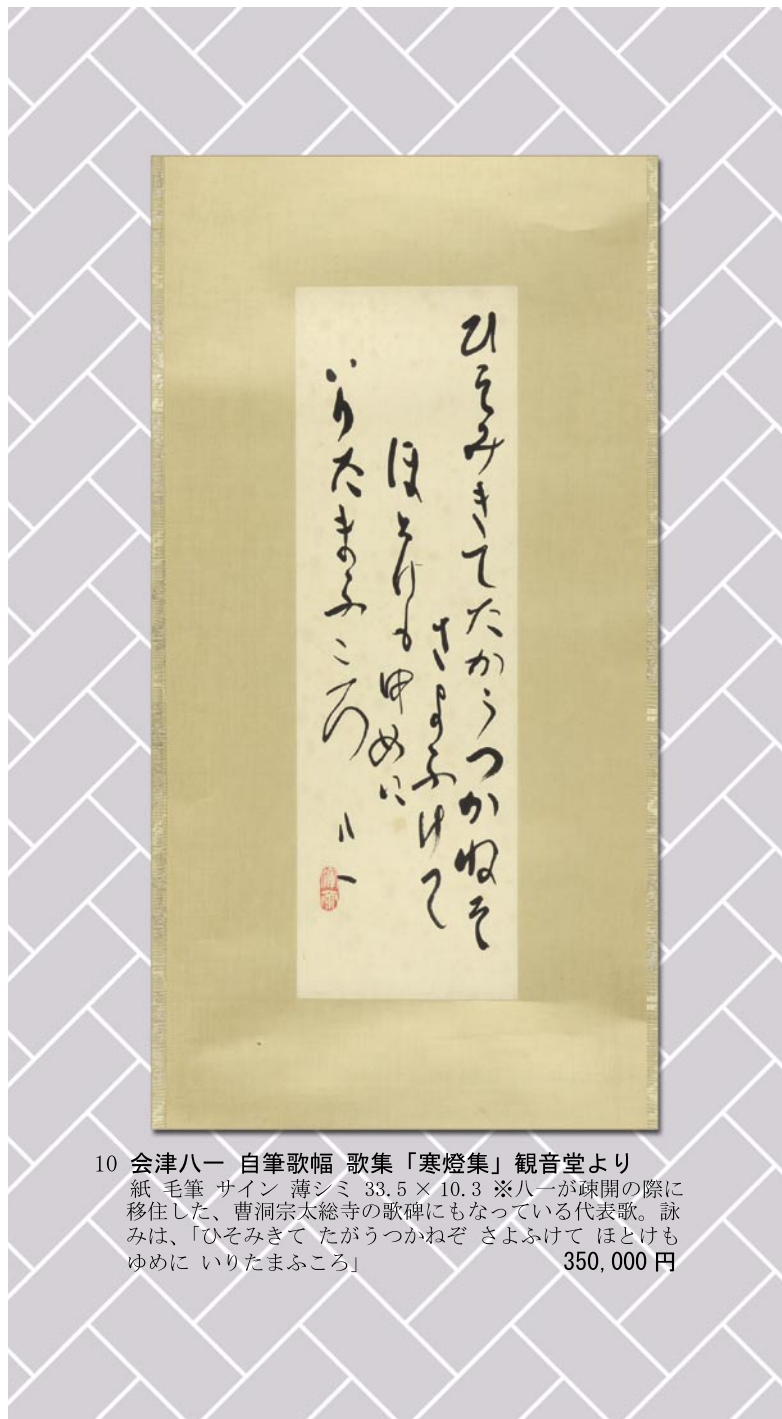 ひそみきてたかうつかねそ
さよふけて
ほとけもゆめに
いりたまふころ
八一
10 会津八一 自筆歌幅 歌集「寒燈集」観音堂より
紙 毛筆 サイン 薄シミ 33.5 × 10.3 ※八一が疎開の際に
移住した、曹洞宗太総寺の歌碑にもなっている代表歌。詠
みは、「ひそみきて たがうつかねぞ さよふけて ほとけも
ゆめに いりたまふころ」
350,000 円